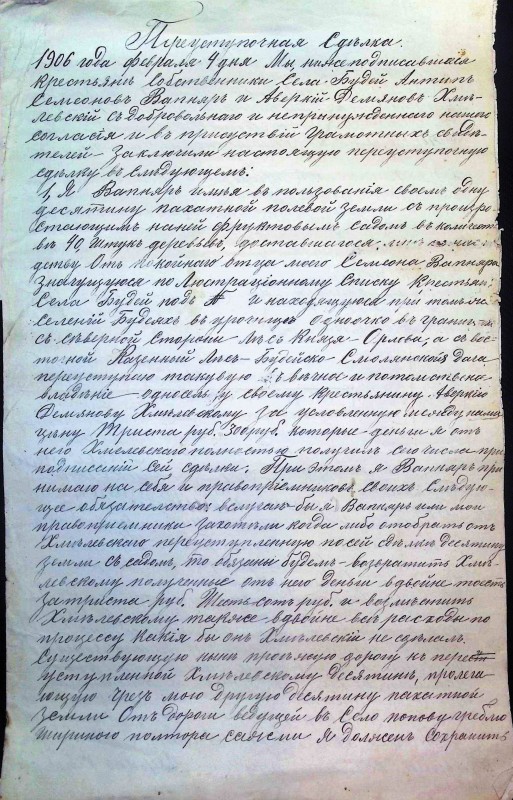 Переуступочная Сдѣлка.
1906 года Февраля 4 дня Мы нижеподписавшіяся
крестьяне Собственники Села Будей Антипъ
Семеоновъ Вапняръ и Аверкій Демяновъ Хмѣ-
левскій съ добровольнаго и непринужденнаго нашего
согласія и въ присутствій грамотныхъ свидѣ-
телей заключили настоящую переуступочную
сдѣлку въ слѣдующемъ:
1, Я Вапняръ имѣя въ пользованія своемъ одну
десятину пахатной полевой земли съ произро-
стающимъ на ней фруктовымъ садомъ въ количест-
вѣ 40, штукъ деревьевъ, доставшагося
дству Отъ покойнаго отца моего Семеона Вапняра
значущуюся по Люстраціонному Списку крестьян:
Села Будей подъ № и находящуюся при томъ же
селеній Будеяхъ въ Одночко въ границ
съ сѣверной Стороны Лѣсъ Князя Орлова, а съ вос-
точной Казенный Лѣсъ Будейско Смолянской дача
переуступаю таковую въ вѣчное и потомственное
владѣніе односельцу своему крестьянину Аверкію
Демянову Хмѣлевскому за условленную между нами
цѣну Триста руб. 300 руб. которые деньги я отъ
него Хмѣлевскаго полностью получилъ сего числа при
подписаній сей сдѣлки. При этомъ я Вапняръ при
нимаю на себя и правопріемниковъ своихъ слѣдую-
щее обязательство: вслучаю бы я Вапняръ или мои
правопріемники захотѣли когда либо отобрать отъ
Хмѣлевскаго переуступленную по сей сдѣлкѣ десятину
земли съ садомъ, то обязаны будемъ возвратить Хмѣ-
левскому полученные отъ него деньги вдвойне тоесть
за триста руб. Шесть сотъ руб. и возмѣстить
Хмѣлевскому также вдвойне всѣ расходы по
процессу какія бы онъ Хмѣлевскій не сдѣлалъ.
Существующую нынѣ проѣзжую дорогу къ
уступленной Хмѣлевскому десятинѣ, пролега
ющую чрезъ мою другую десятину пахатной
земли Отъ дороги ведущей въ Село Попову греблю
шириною полтора сажени я долженъ сохранить